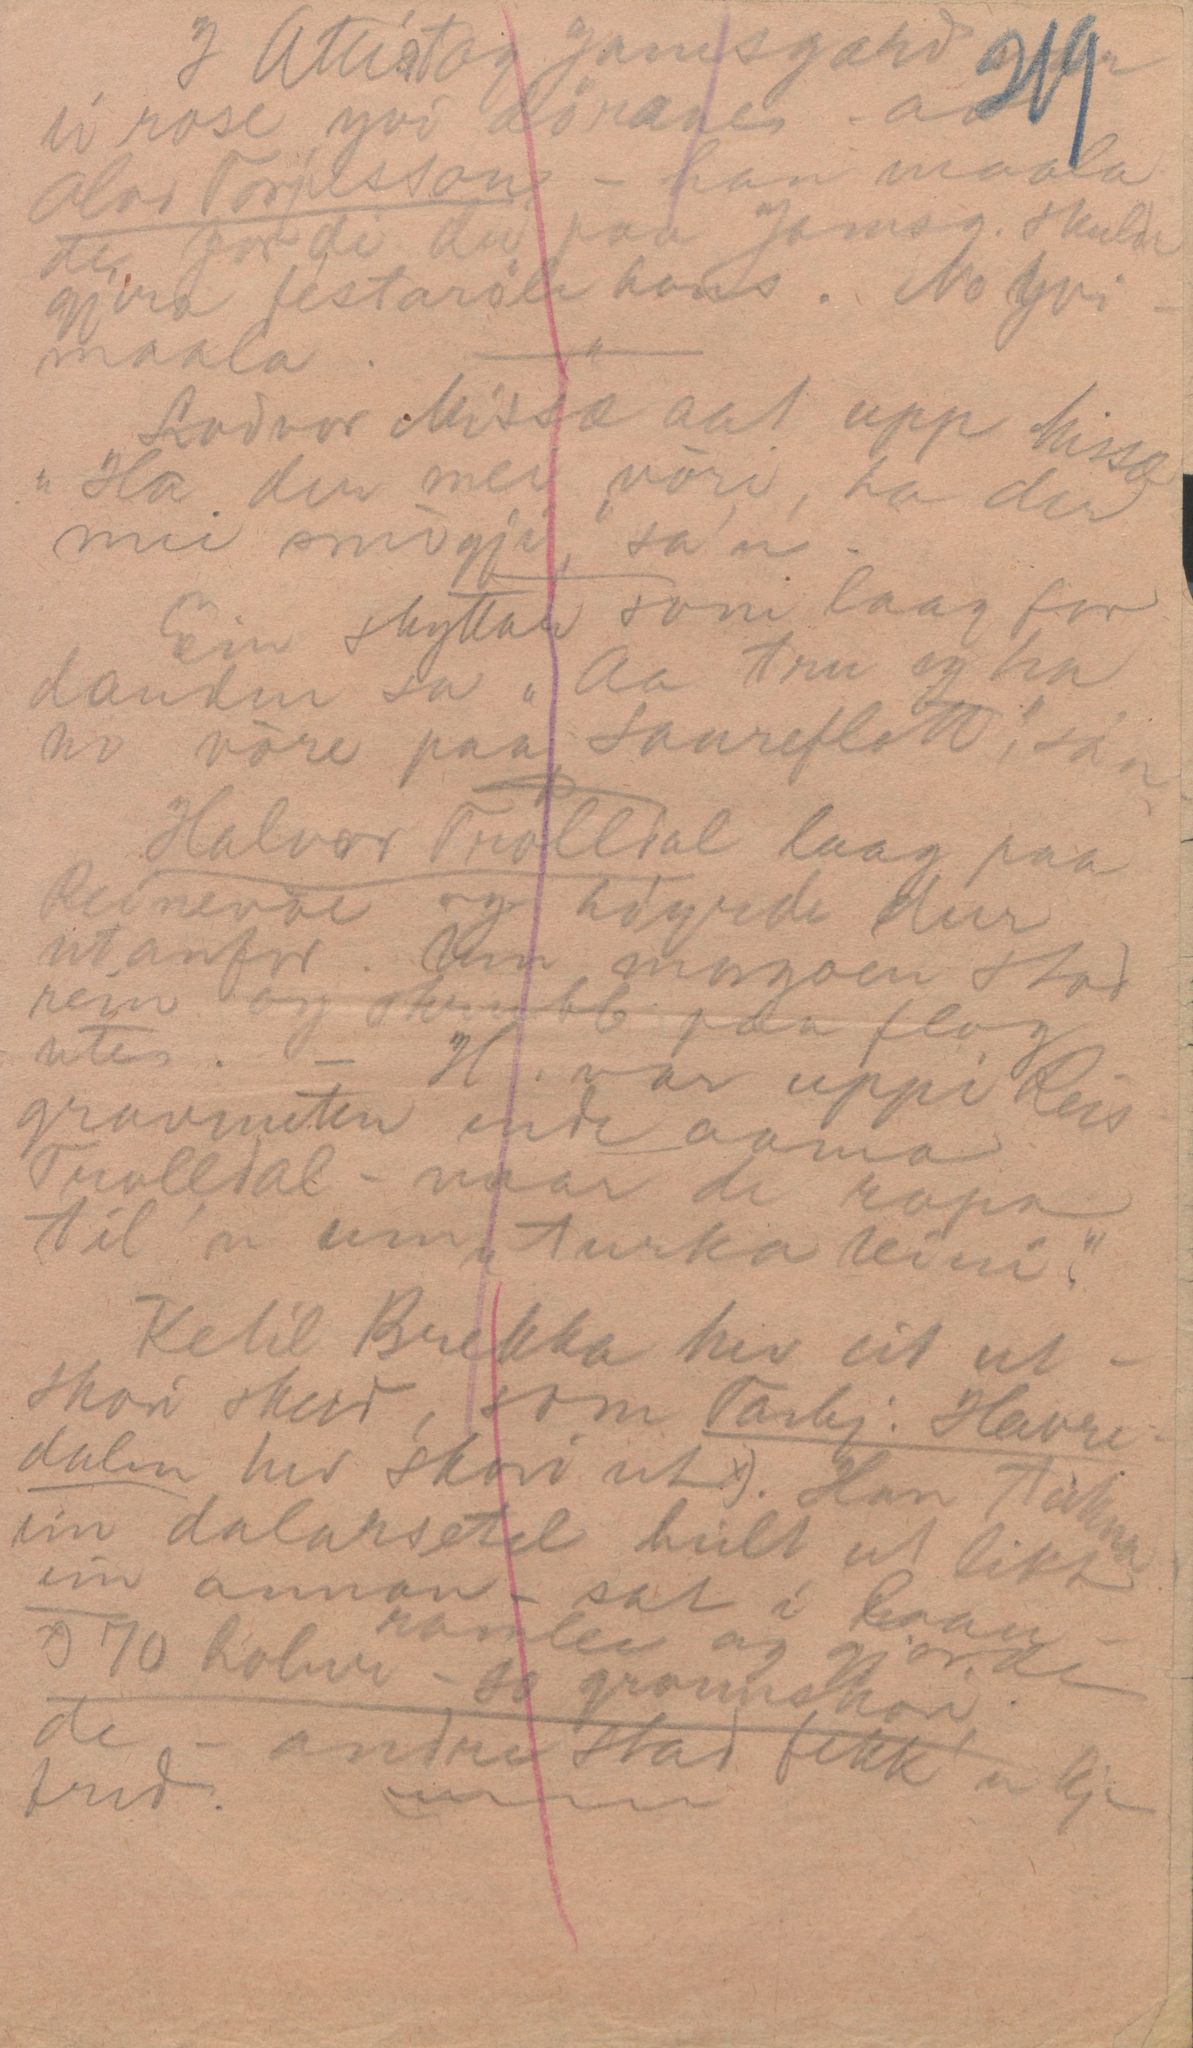 219
I Attistog Jamsgard er
ei rose yvi dörane - av
Olav Torjusson - han maala
de fordi dei paa Jamsg. skulde
gjera festaröle hans. No yvi-
maala.
Lodvor Missæ aat upp Missæ
"Ha der mei vöri, ha der
mei smögji," sa'n.
Ein skyttar som laag for
dauden sa "Aa tru eg ha
no vöre paa Saureflott," sa'n.
Halvor Trölldal laag paa
Reinevae og höyrde dur
utanfor. Um morgoen stod
rein og skrubb paa flog
utes. - H. var uppi Reis
gravneten
Trolldal - naar de ropa
til 'n um "turka Reini."
Ketil Brekka hev eit ut-
skori skeid, som Tarkj. Havre-
dalen hev skori ut x). Han
ein dalarsetel heilt ut likt
ein annan - sat i
ramlei og gjorde
x) 70 holur - so grannskori
de - andre stad fekk 'n kje
fred.